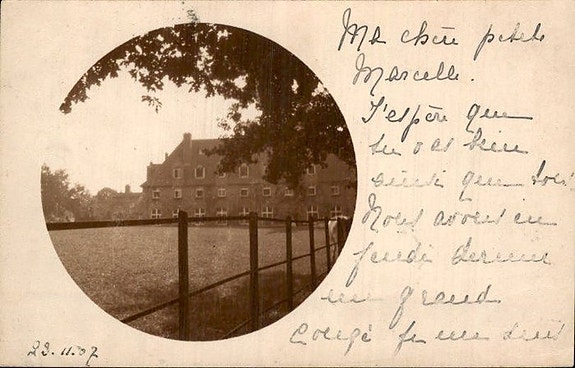 Ma chère petite
Marcelle.
J'espère que
tu vas bien
ainsi que tous.
Nous avons eu
jeudi dernier
un grand
congé je me suis
23.11.07